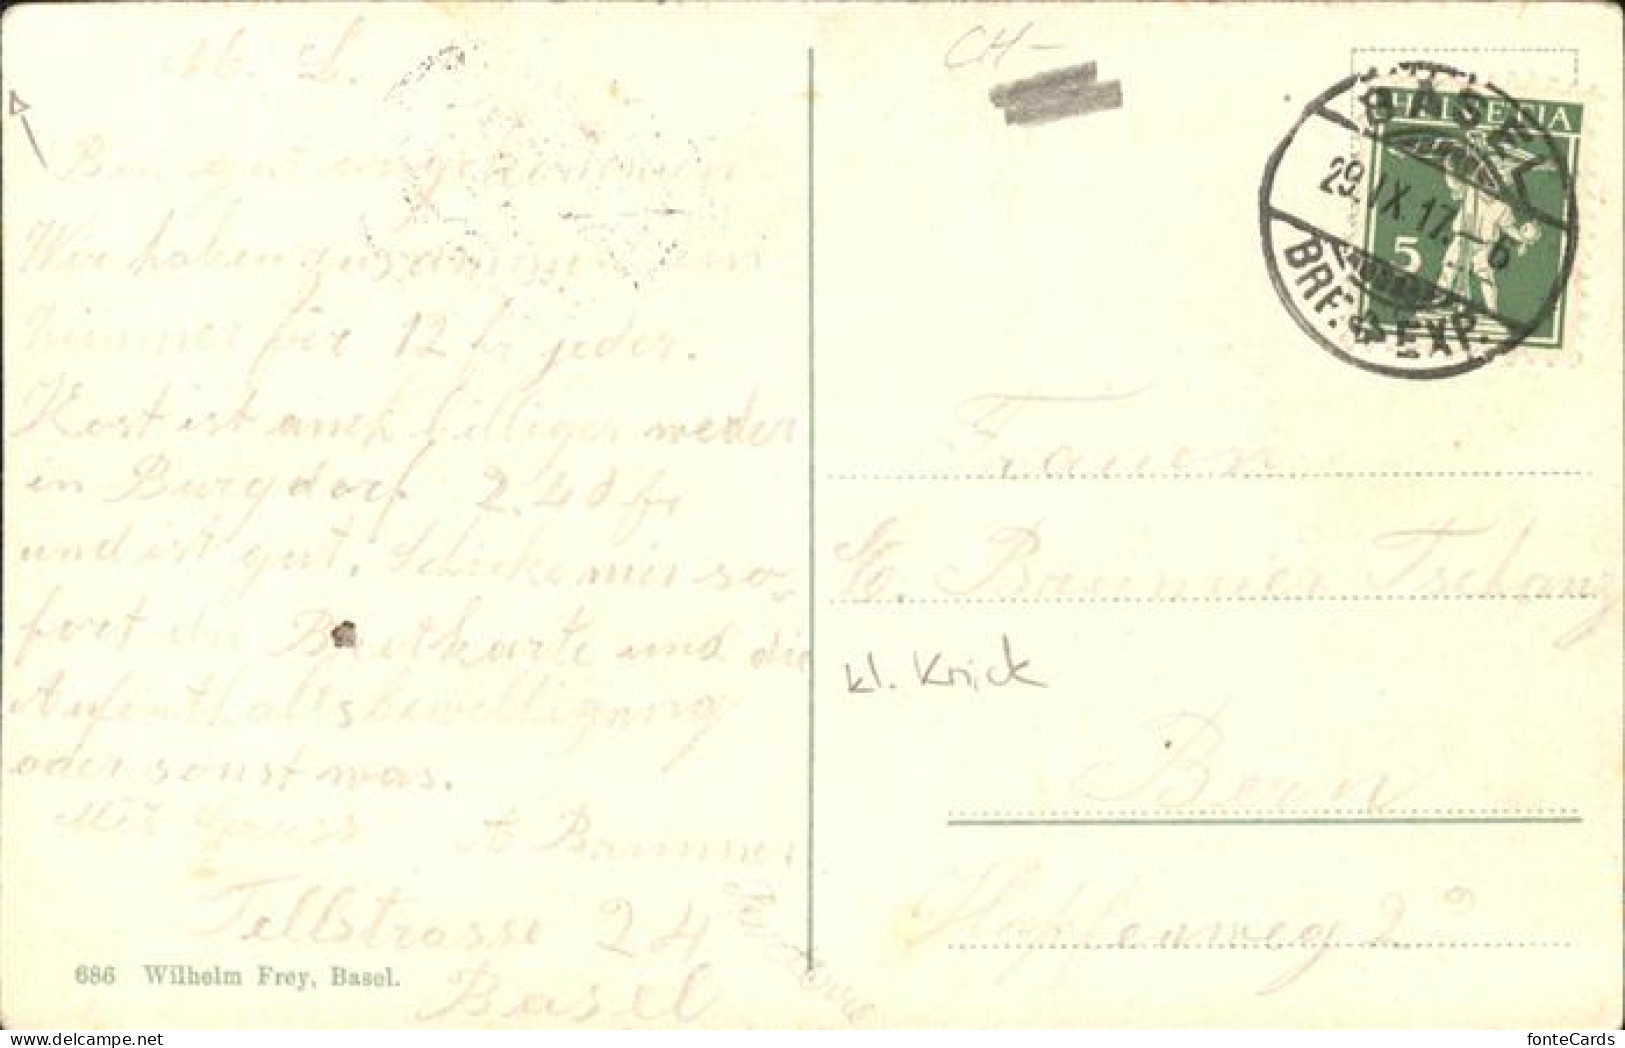 M. L.
Bin gut angekommen
Wir haben zusammen ein
Zimmer für 12 fr jeder.
Kost ist auch billiger weder
in Burgdorf 2.40 fr
und ist gut. Schicke mir so-
fort die Brotkarte und die
Aufenthaltsbewilligung
oder sonst was.
Mit Gruss
A Brunner
Tellstrasse 24
Basel
686 Wilhelm Frey, Basel.
CH-
HELVETIA
5
BASEL
29.IX.17.-6
BRF. EXP.
Frauen
Brunner Tschanz
kl. Knick
Bern
Hopfenweg 2
fonteCards